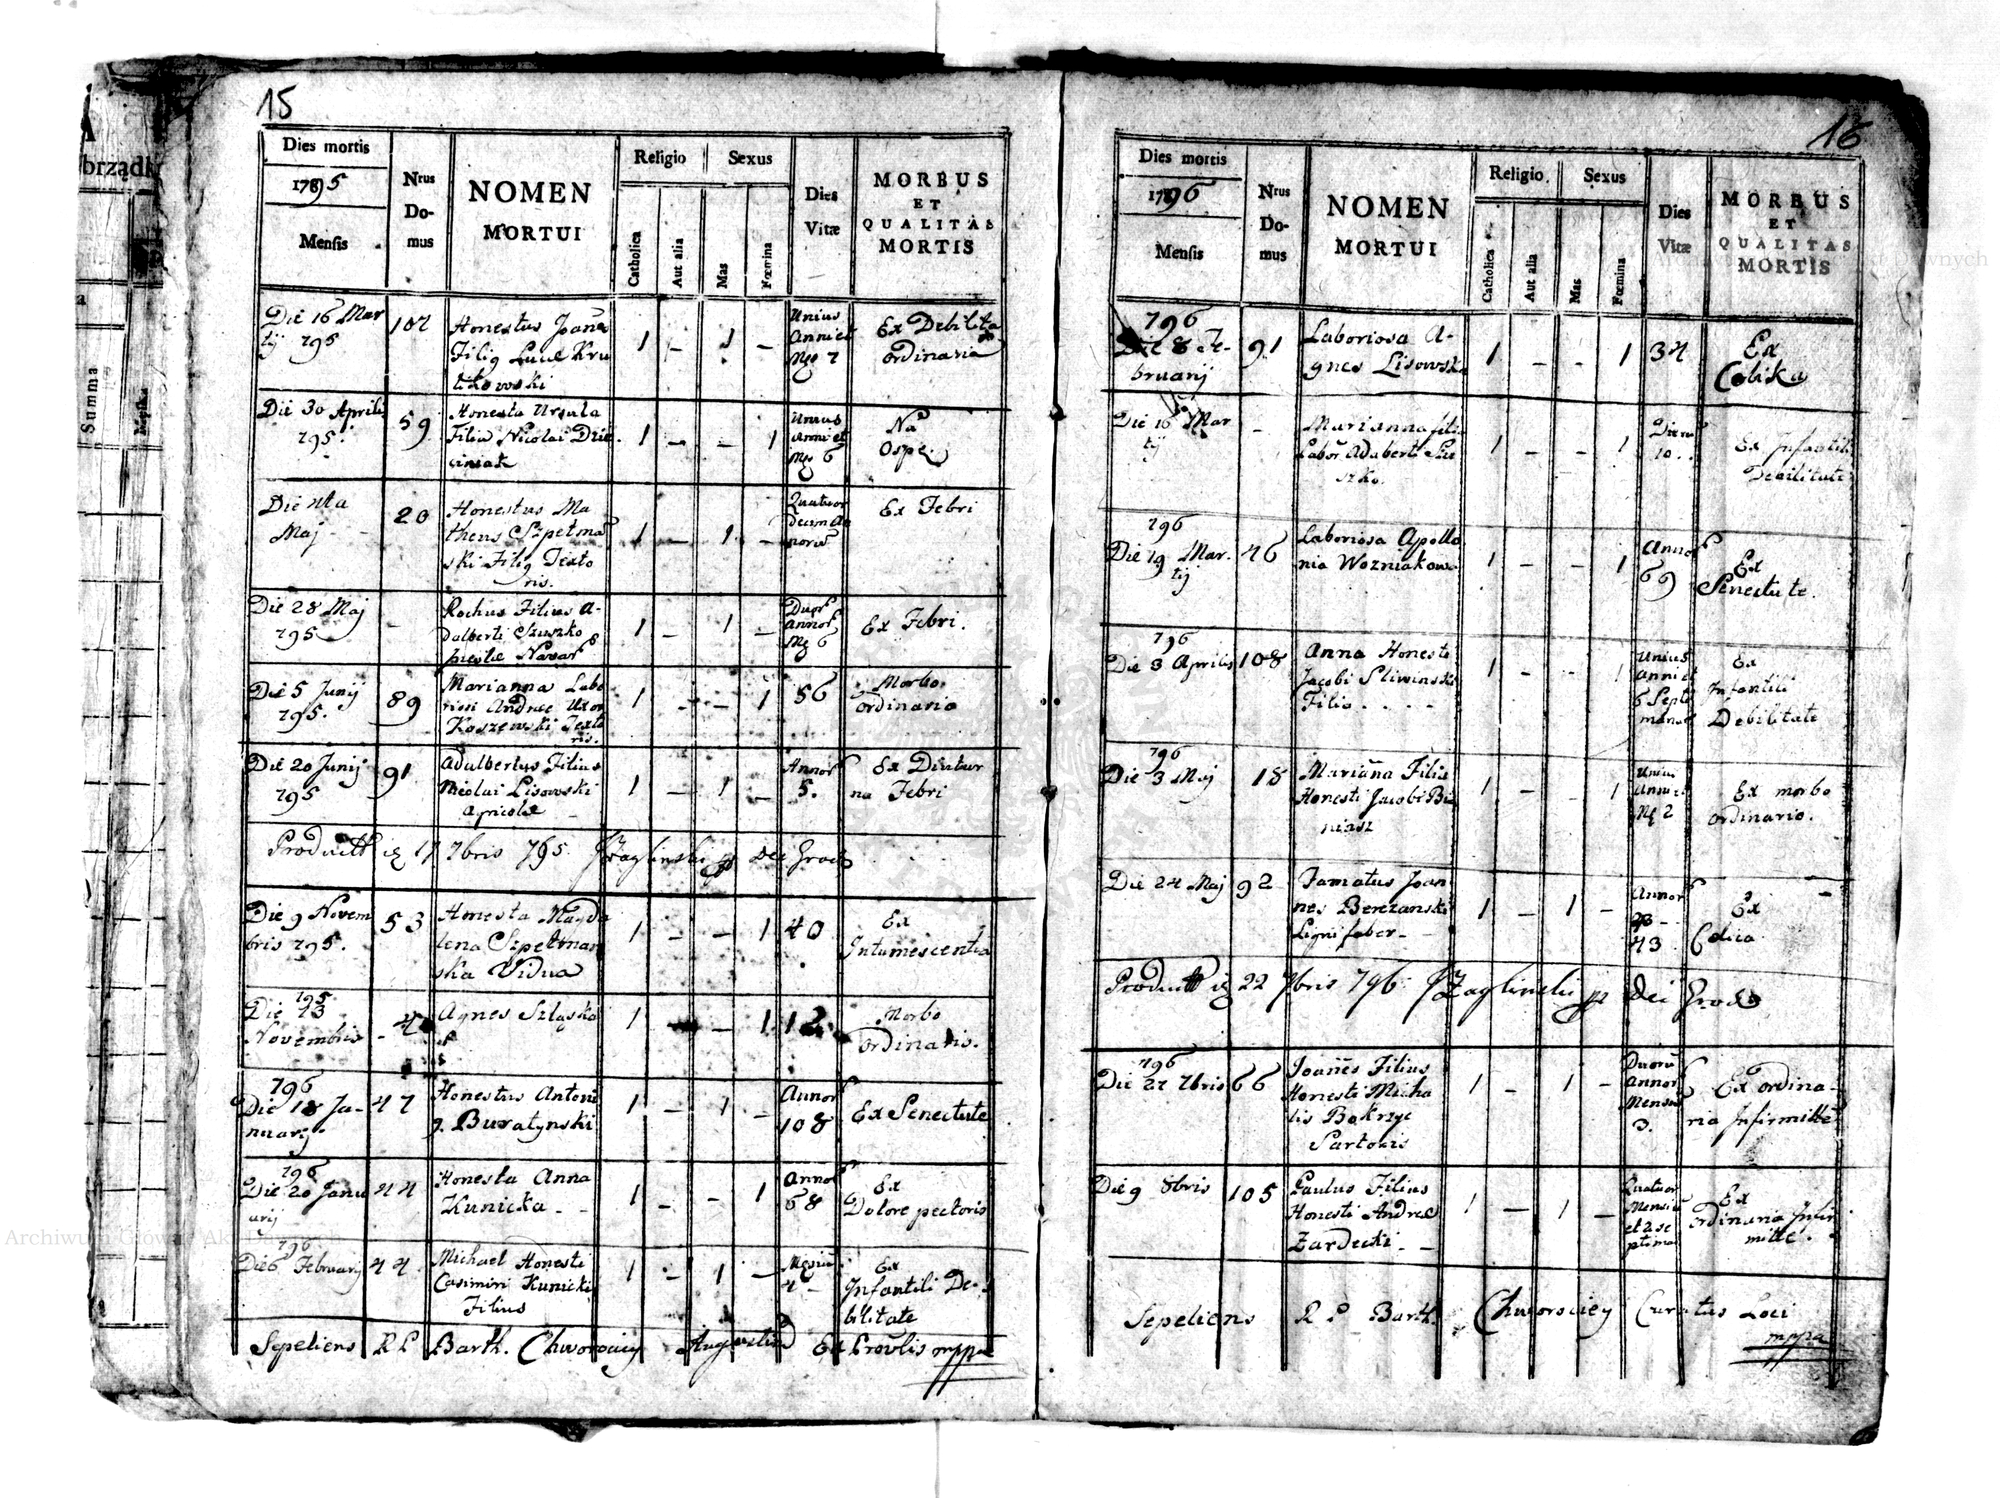 15
Dies mortis
1795
Mensis
Nrus
Do-
mus
NOMEN
MORTUI
Religio
Catholica
Aut alia
Sexus
Mas
Fœmina
Dies
Vitæ
MORBUS
ET
QUALITAS
MORTIS
Die 16 Mar
tij 795
107
Honestus Joañe
Filiq Lucæ Kru
tikowski
1 - 1 -
Unius
Anni et
Mẽs 7
Ex Debilita
ordinaria
Die 30 Aprilis
795.
59
Honesta Ursula
Filia Nicolai Dzie
ciniak
1 - - 1
Unius
Anni et
Mẽs 6
Na
Ospę
Die
Maj
20
Honestus Ma
theus Szpetma
ski Filiq Texto
ris.
1 - 1 -
Quatuor
decim An
norũ
Ex Febri
Die 28 Maj
795
-
Rochus Filius A-
dalberti Szuszko
1 - 1 -
Duorͬ
annorͬ
Mẽs 6
Ex Febri.
Die 5 Junij
795.
89
Marianna Labo
riosi Andreæ Uxor
Koszewski Texto
ris.
1 - - 1
56
Morbo
ordinario
Die 20 Junij
795
91
Adalbertus Filius
Nicolai Lisowski
Agricolæ
1 - 1 -
Annorͬ
5.
Ex Diutur
na Febri
17 7bris 795.
Die 9 Novem
bris 795.
53
Honesta Magda
lena Szpetmań
ska Vidua
1 - - 1
40
Ex
Intumescentia
795
Die 13
Novembris
Agnes Szląska
1 - - 1
12
Morbo
Ordinaris.
796
Die 18 Ja-
nuarij
47
Honestus Antoni
q. Buratynski
1 - 1 -
Annorͬ
108
Ex Senectute
796
Die 20 Janu
arij
44
Honesta Anna
Kunicka - -
1 - - 1
Annorͬ
68
Ex
Dolore pectoris
796
Die 6 Februarij
44
Michael Honesti
Casimiri Kunicki
Filius
1 - 1 -
4 -
Ex
Infantili De-
bilitate
Sepeliens R P Barth. Chworociey mppa
16
Dies mortis
1796
Mensis
Nrus
Do-
mus
NOMEN
MORTUI
Religio
Catholica
Aut alia
Sexus
Mas
Fœmina
Dies
Vitæ
MORBUS
ET
QUALITAS
MORTIS
796
Die 8 Fe-
bruarij
91
Laboriosa A-
gnes Lisowska
1 - - 1
34
Ex
Colika
Die 16 Mar
tij
-
Marianna filia
Labor Adalberti Szu
szko.
1 - - 1
Dierum
10.
Ex Infantili
Debilitate
796
Die 19 Mar.
tij
46
Laboriosa Apollo
nia Wozniakowa
1 - - 1
Annorͬ
69
Ex
Senectute.
796
Die 3 Aprilis
108
Anna Honesti
Jacobi Sliwinski
Filia - - -
1 - - 1
Unius
Anni et
6 Septi
manaͬ
Ex
Infantili
Debilitate
796
Die 3 Maj
18
Mariaña Filia
Honesti Jacobi Bie
niasz
1 - - 1
Unius
Anni et
Mẽs 2
Ex morbo
ordinario.
Die 24 Maj
92
Famatus Joan
nes Berezanski
Ligni faber -
1 - 1 -
Annorͬ
43
Ex
Colica
22 7bris 796
796
Die 27 7bris
66
Joañes Filius
Honesti Micha
lis Bokrzyc
Sartoris
1 - 1 -
Duorũ
Annorͬ
Mensiũ
3.
Ex ordina-
ria Infirmitte
Die 9 8bris
105
Paulus Filius
Honesti Andreæ
Zardecki - -
1 - 1 -
Quatuor
Mensiũ
et 2 se
ptima
Ex
ordinaria Infir
mitte.
Sepeliens R P Barth. Chworociey Curatus Loci
mppa